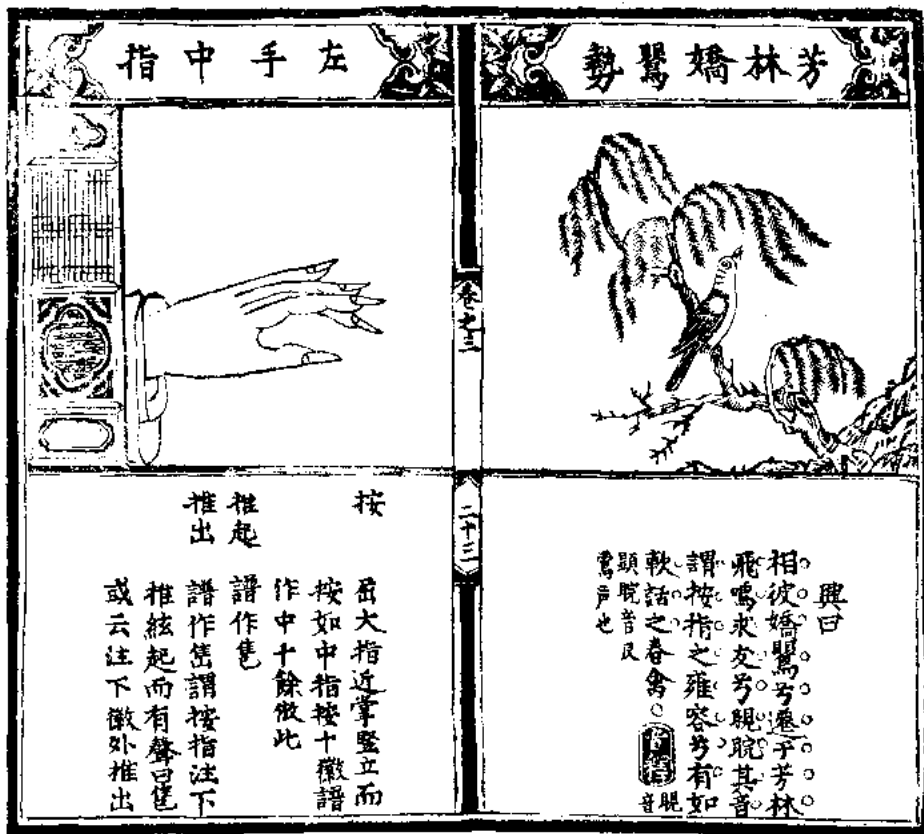 芳林嬌鸎勢
興曰
相彼嬌鸎兮遷于芳林
飛鳴求友兮睍睆其音
謂按指之雍容兮有如
軟話之春禽
睍音
顯睆音
鸎声也
卷之三
二十三
左手中指
按
屈大指近掌竪立而
按如中指按十徽譜
作中十餘倣此
推起
譜作
推出
譜作 謂按指注下
推絃起而有聲曰
或云注下徽外推出